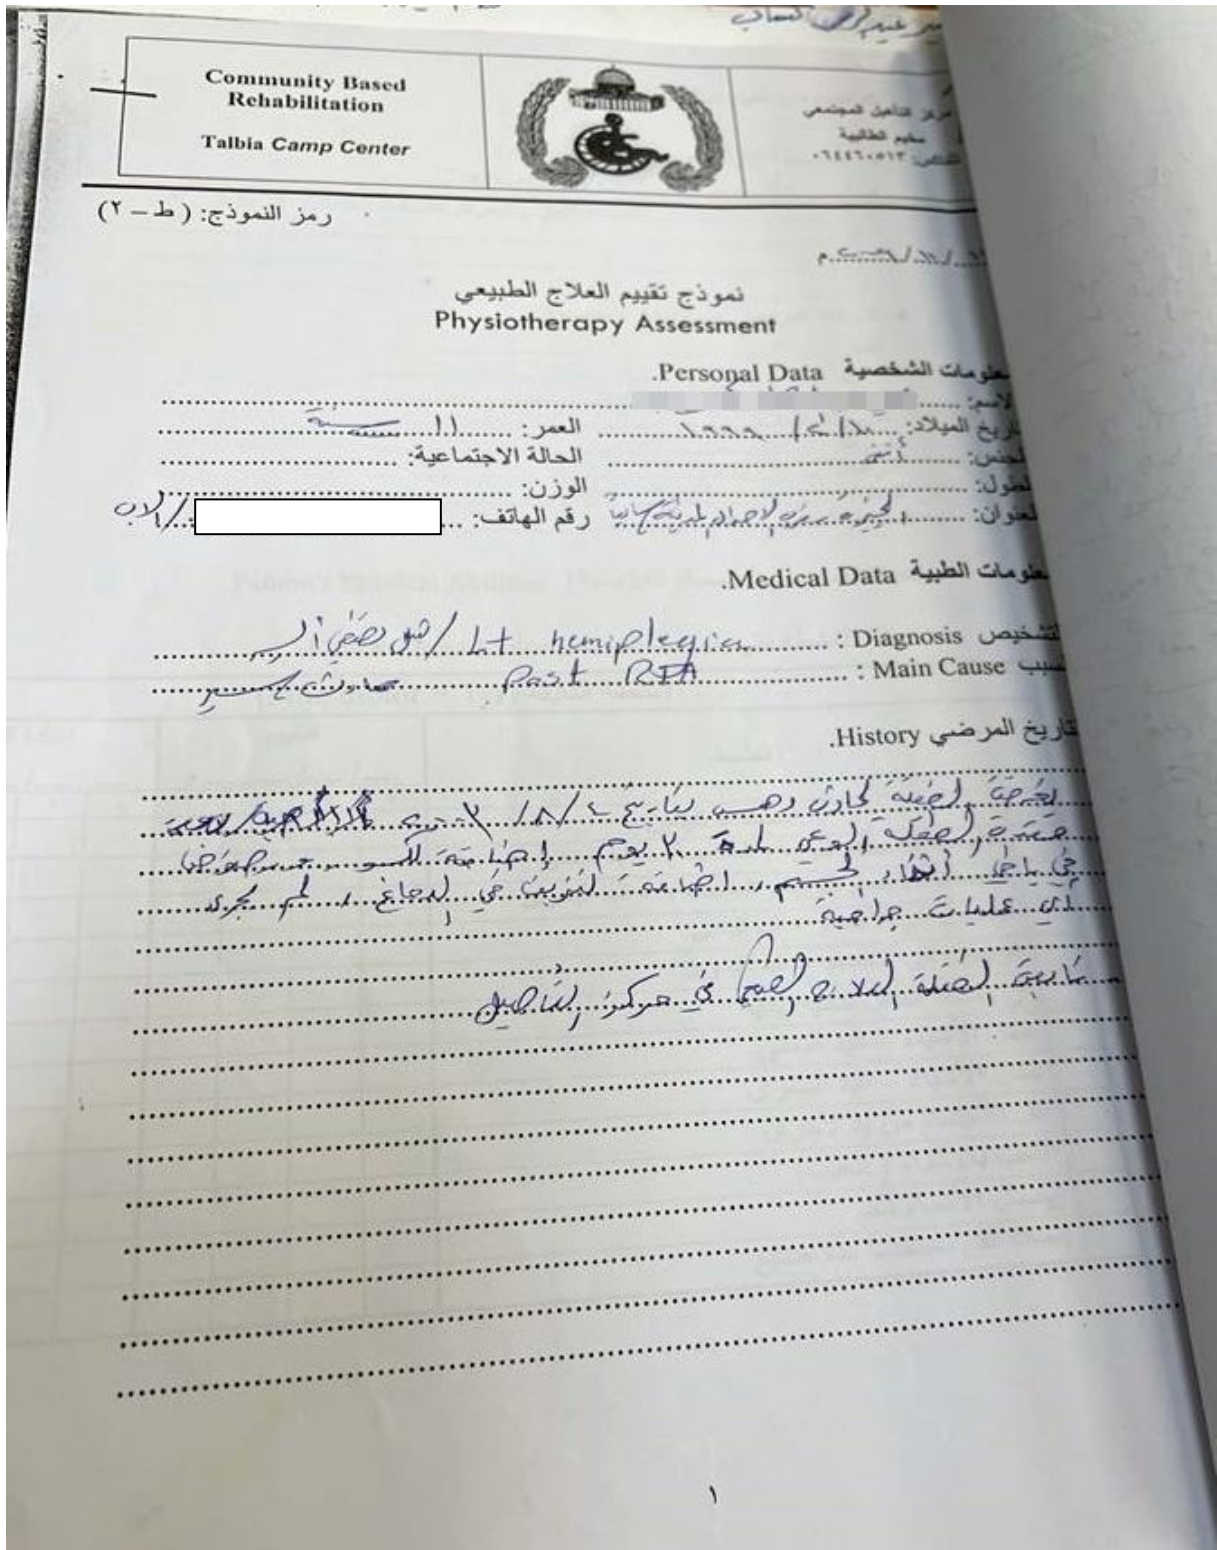 Community Based
Rehabilitation
Talbia Camp Center
مركز التأهيل المجتمعي
مخيم الطالبية
رمز النموذج: (ط – ٢)
نموذج تقييم العلاج الطبيعي
Physiotherapy Assessment
معلومات الشخصية Personal Data.
الاسم:
تاريخ الميلاد: العمر: ١١ سنة
الجنس: أنثى الحالة الاجتماعية:
الطول: الوزن:
العنوان: رقم الهاتف: / الأب
معلومات الطبية Medical Data.
التشخيص Diagnosis : Lt hemiplegia / شلل نصفي
السبب Main Cause : Post RTA حادث سير
تاريخ المرضي History.
تعرضت الطفلة لحادث دهس بتاريخ
الطفلة الوعي لمدة ٢٠ يوم إضافة لكسور
في باقي أنحاء الجسم، إضافة لنزيف في الدماغ، لم يجرى
أي عمليات جراحية
الطفلة العلاج الطبيعي في مركز التأهيل
١